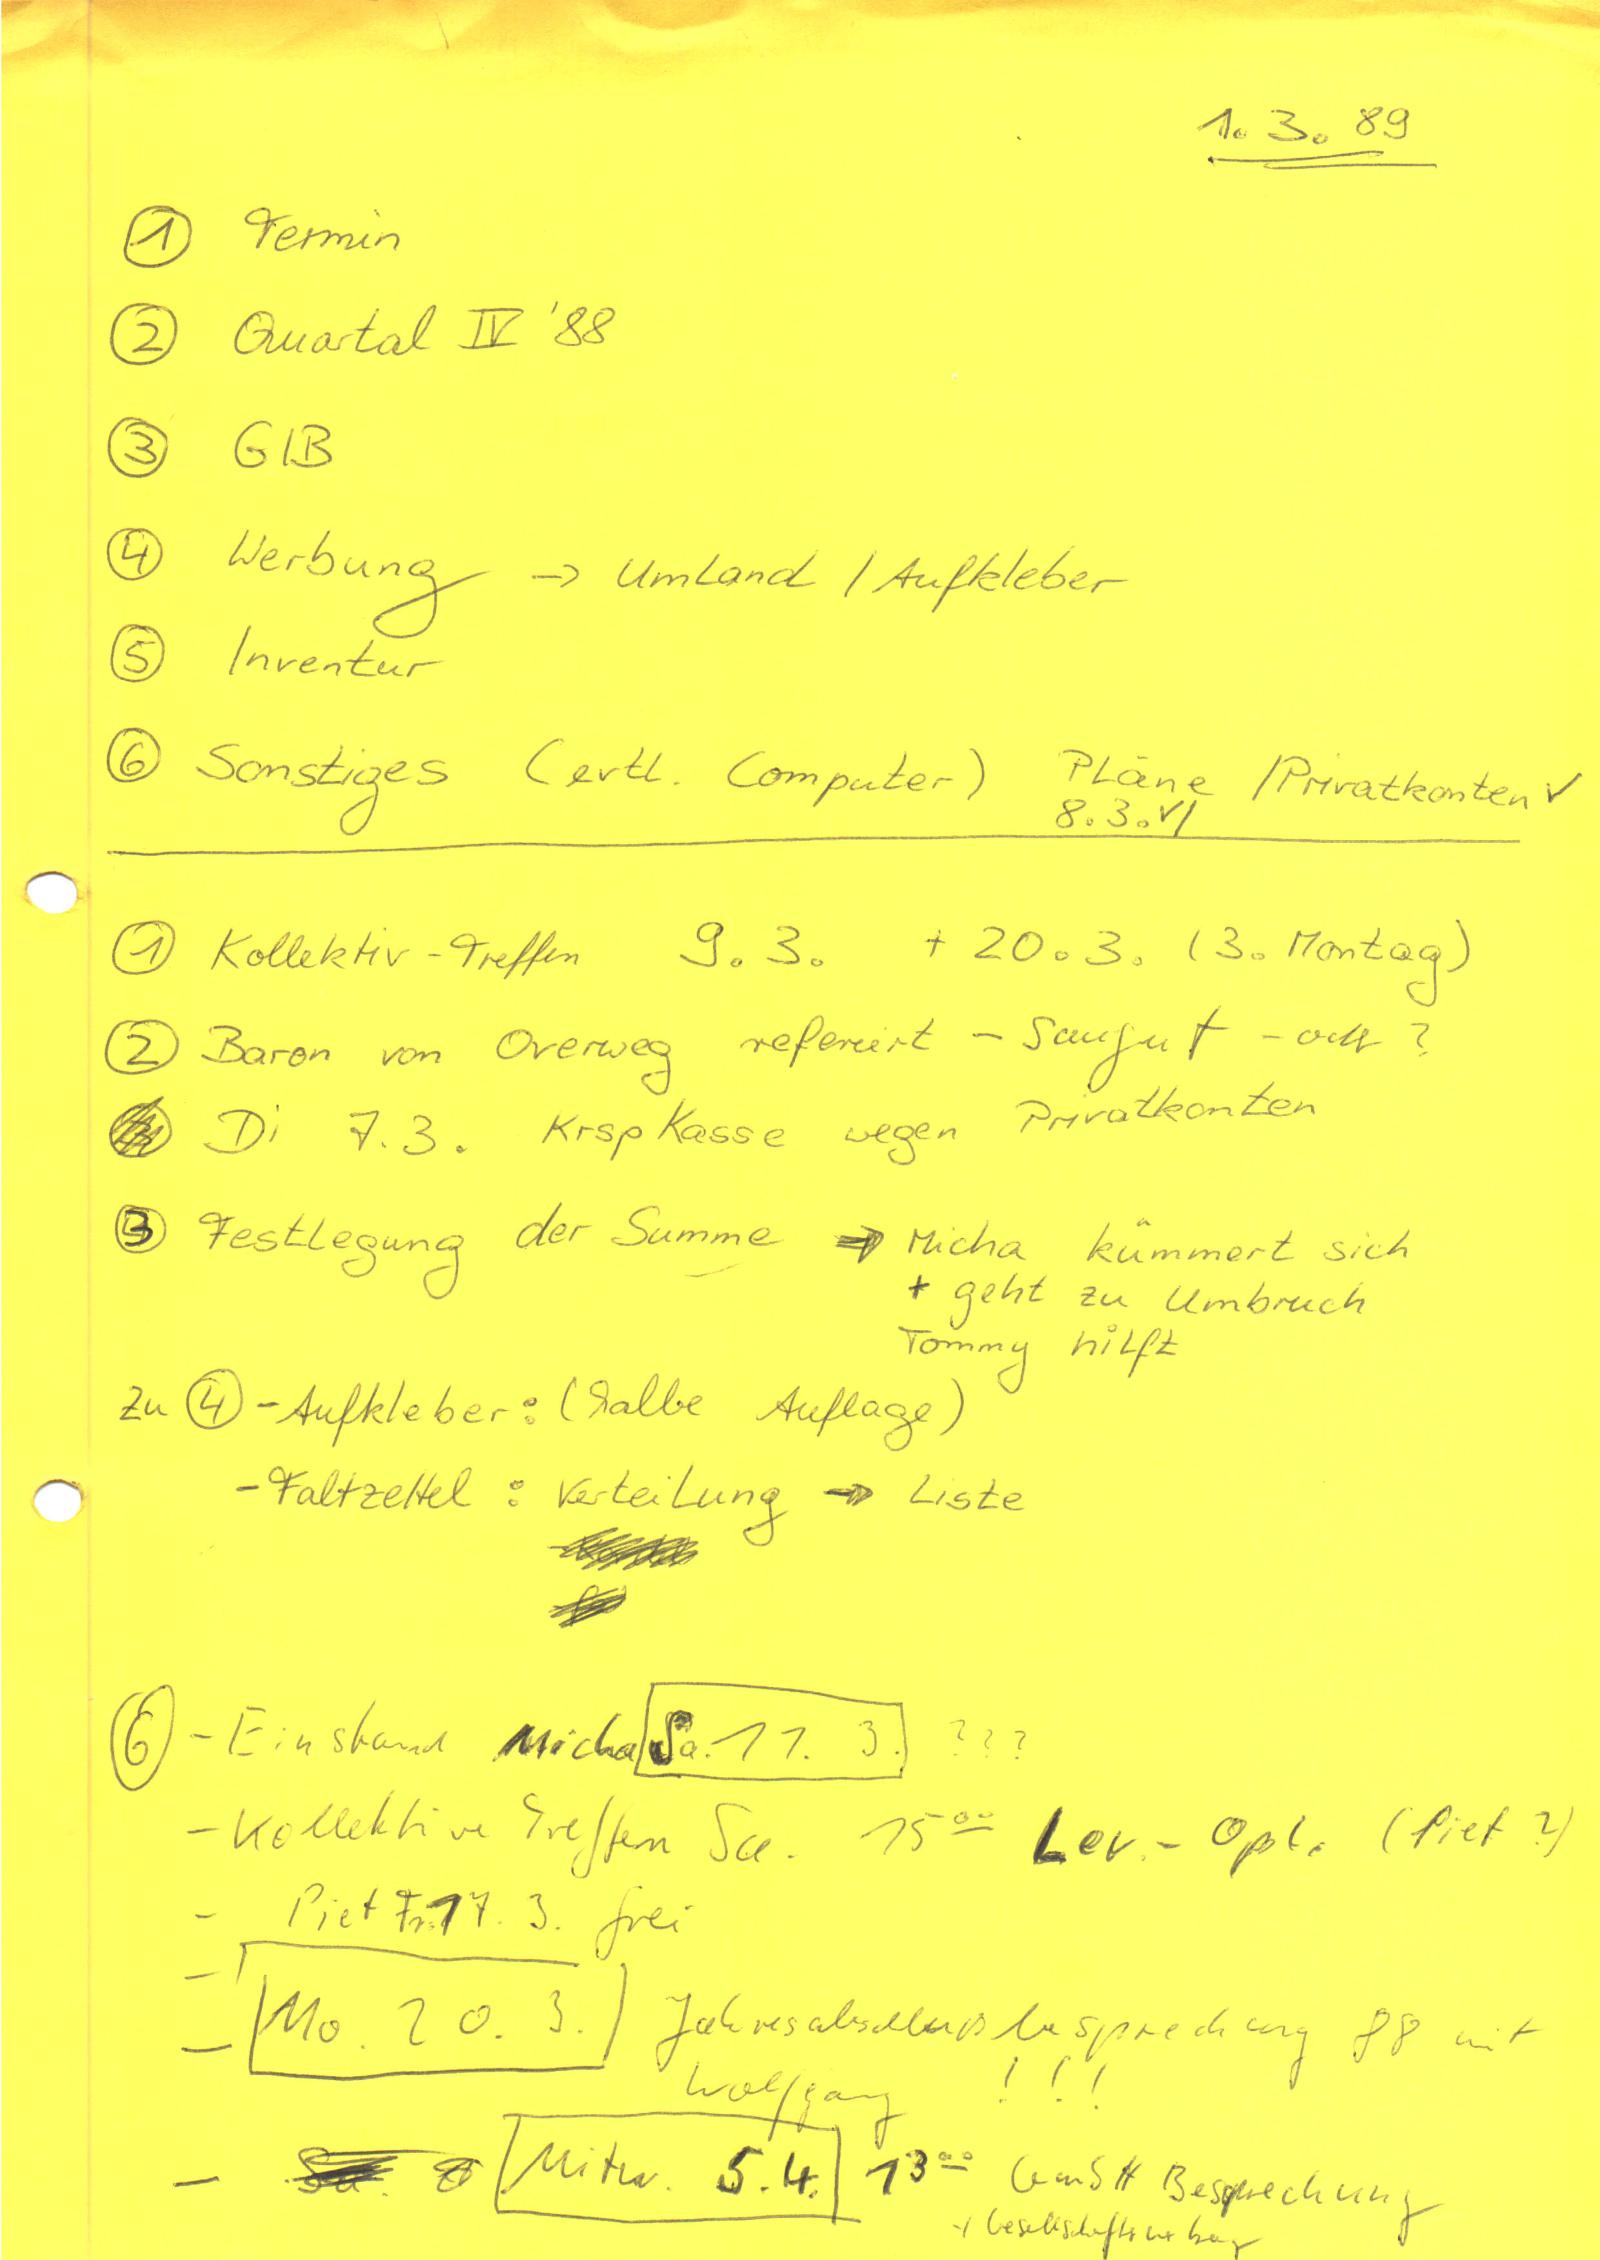 1. 3. 89
① Termin
② Quartal IV '88
③ GIB
④ Werbung → Umland / Aufkleber
⑤ Inventur
⑥ Sonstiges (evtl. Computer) Pläne / Privatkonten ✓
8.3. ✓/
① Kollektiv-Treffen 9.3. + 20.3. (3. Montag)
② Baron von Overweg referiert - Saugut - ?
Di 7.3. KrspKasse wegen Privatkonten
③ Festlegung der Summe → Micha kümmert sich
+ geht zu Umbruch
Tommy hilft
zu ④ - Aufkleber: (halbe Auflage)
- Faltzettel: Verteilung → Liste
⑥ - Einstand Micha Sa. 11. 3. ???
- Kollektive Treffen Sa. 15⁰⁰ Lev.- Opl. (Piet?)
- Piet Fr. 17. 3. frei
-
- Mo. 20. 3. Jahresabschlußbesprechung 88 mit
Wolfgang !!!
- Mitw. 5.4. 13⁰⁰ GmbH Besprechung
+ Gesellschaftsvertrag